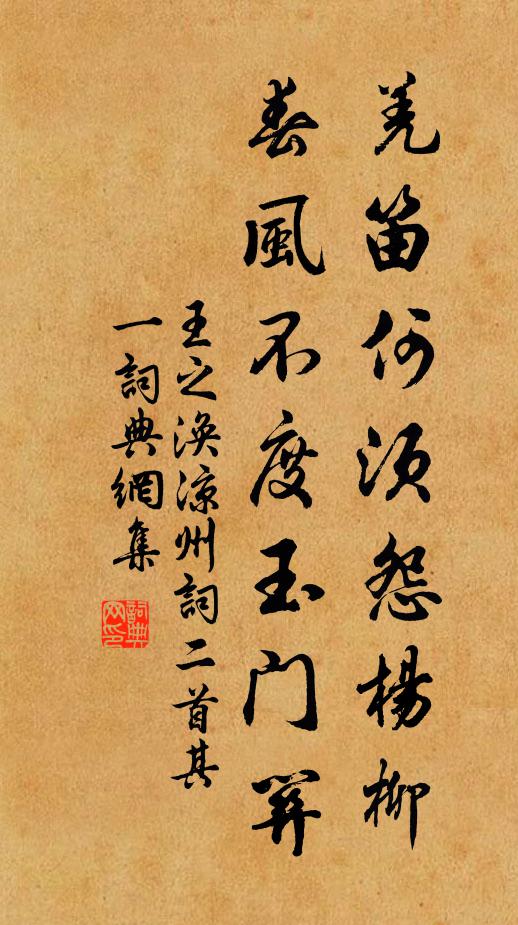 羌笛何須怨楊柳
春風不度玉门關
王之渙涼州詞二首其
一詞典網集
詞典
网印